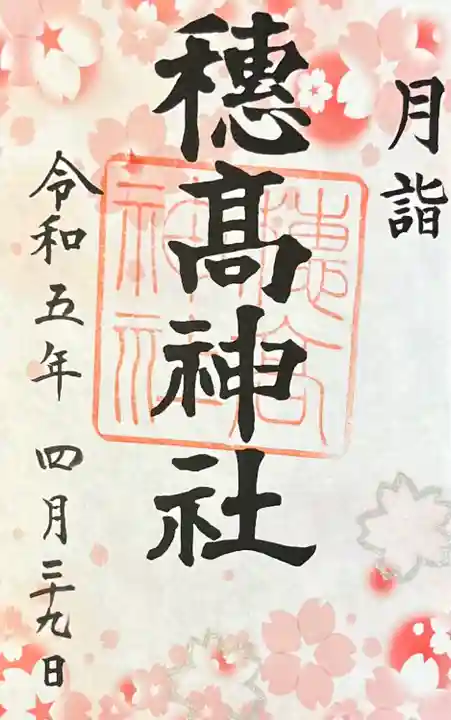 月詣
穗髙神社
穂高
神社
令和五年 四月二十九日